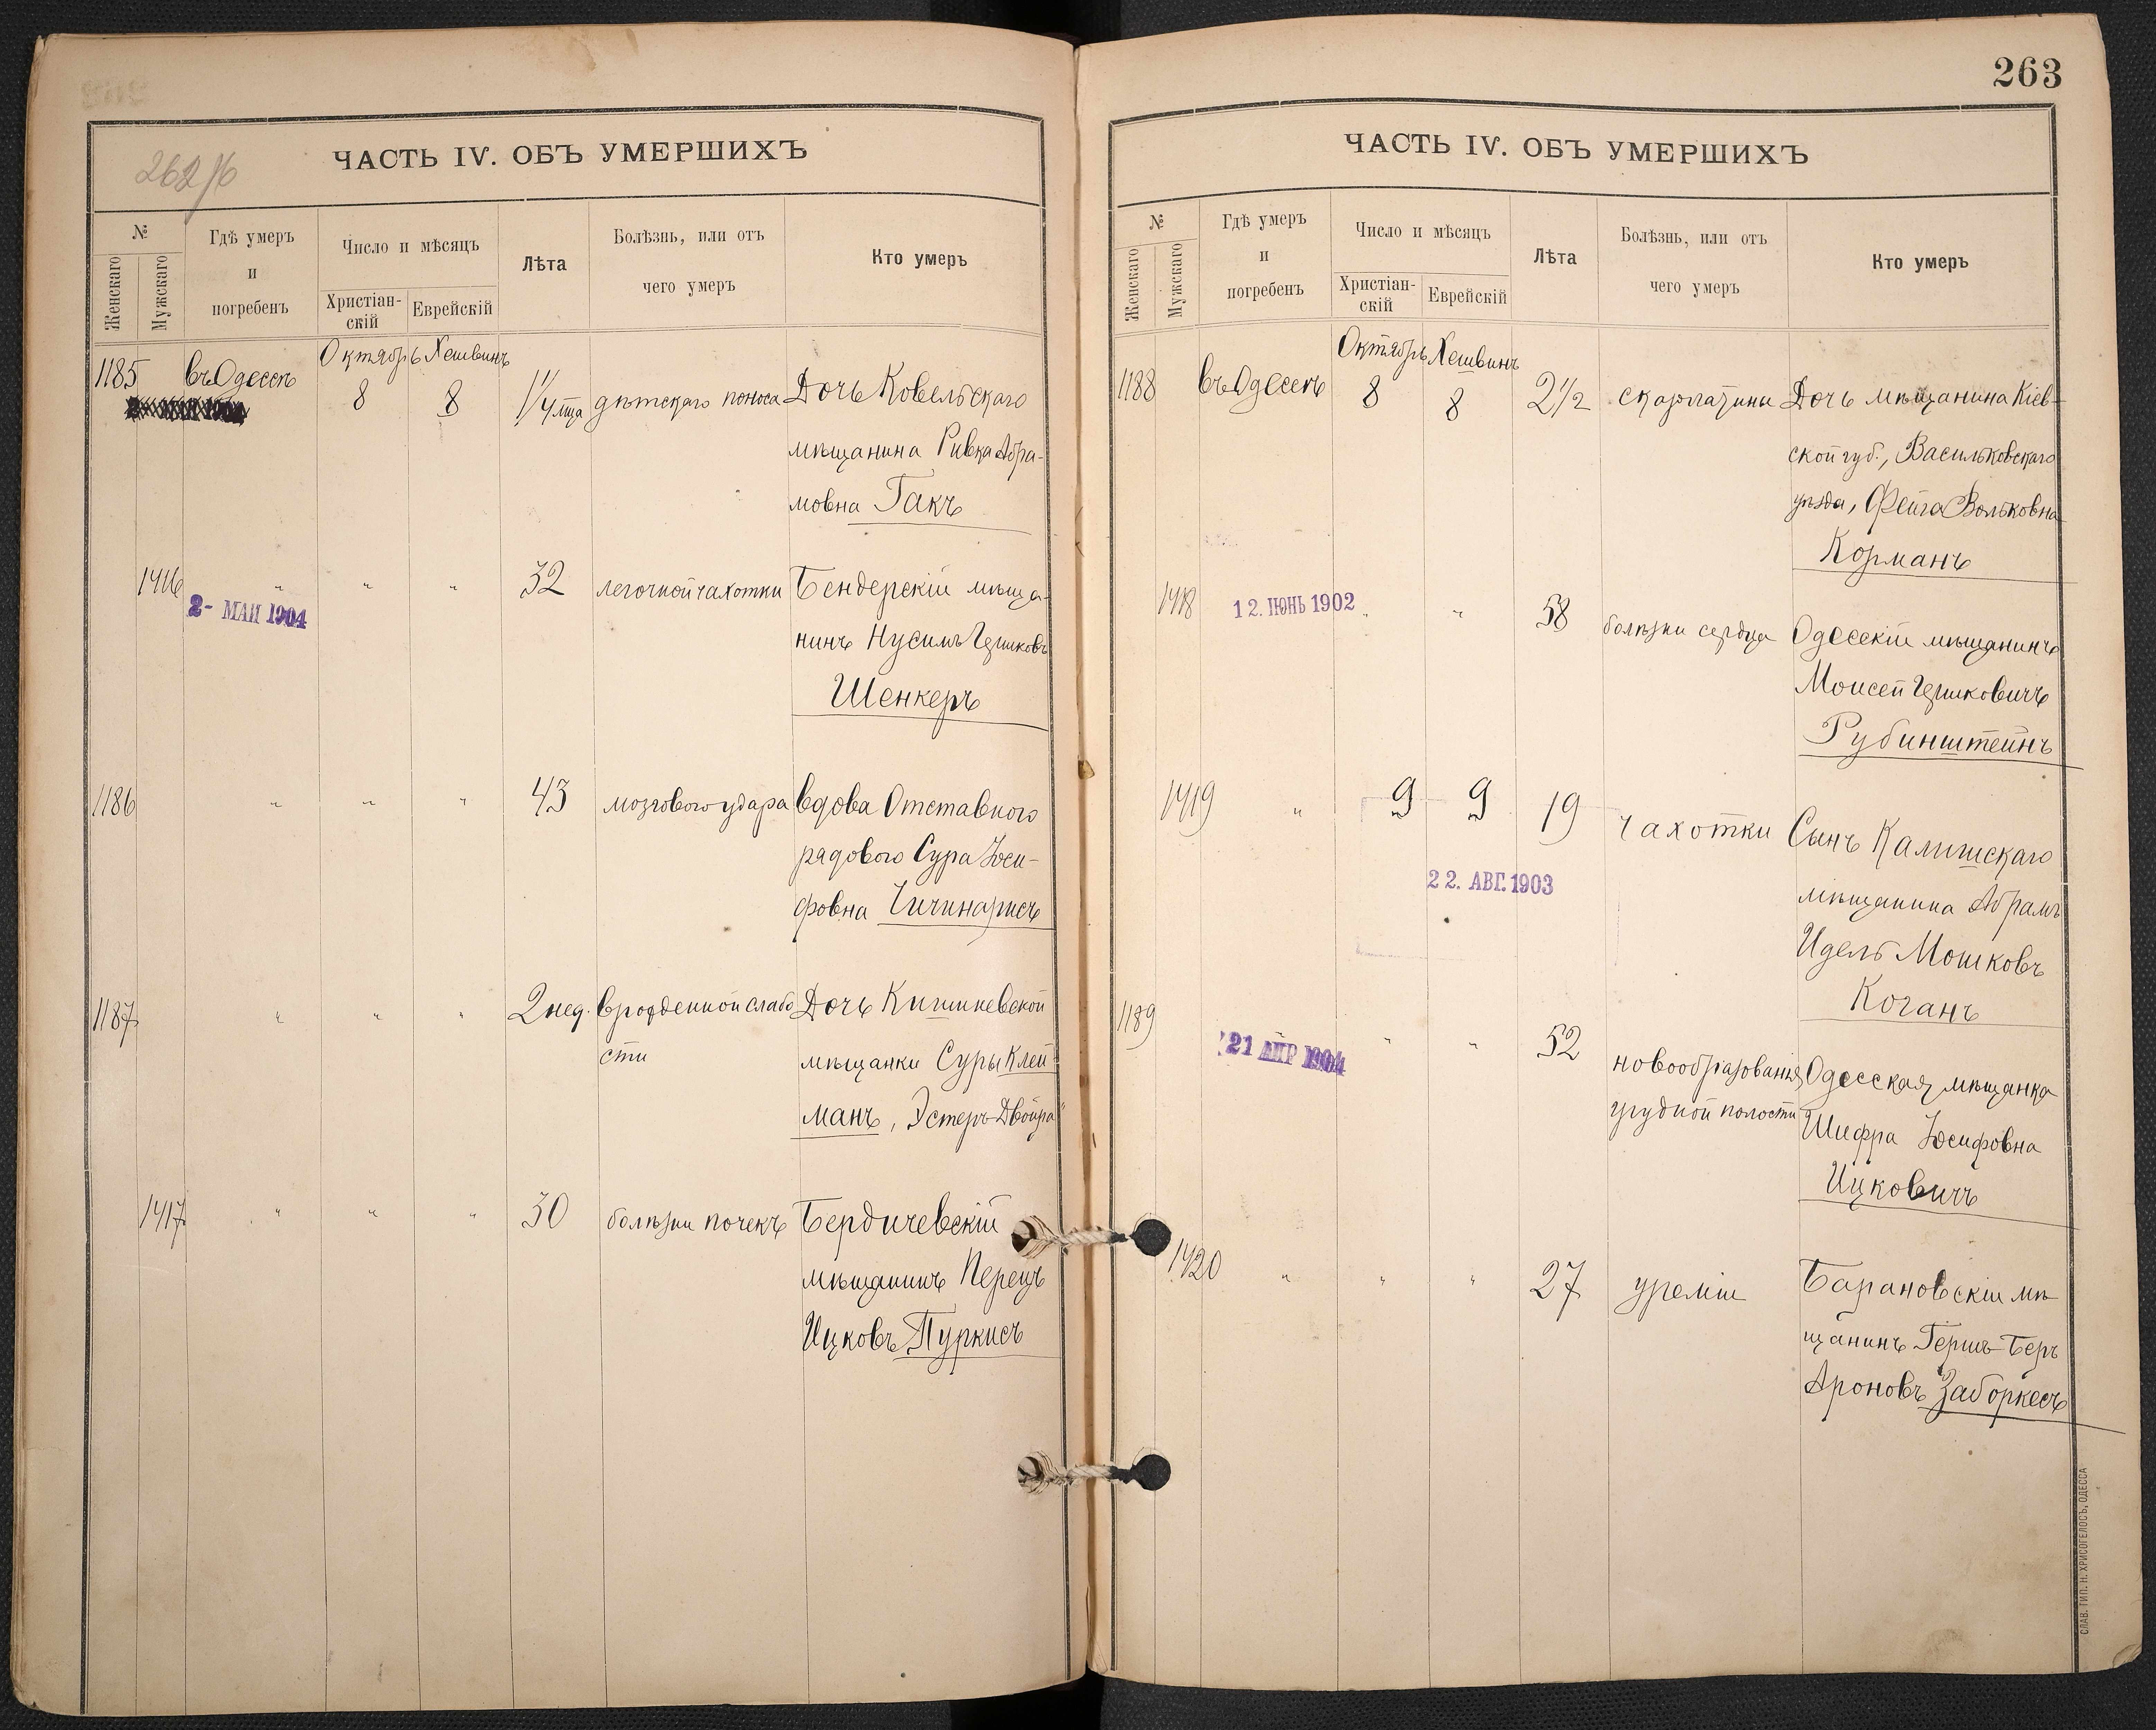 262/б
ЧАСТЬ IV. ОБЪ УМЕРШИХЪ
№
Женскаго
Мужскаго
Гдѣ умеръ
и
погребенъ
Число и мѣсяцъ
Христіан-
скій
Еврейскій
Лѣта
Болѣзнь, или отъ
чего умеръ
Кто умеръ
Октябрь Хешвинъ
1185 въ Одессѣ 8 8 1 1/4 мца дѣтскаго поноса Дочь Ковельскаго
мѣщанина Ривка Абра-
мовна Гакъ
1416 " " " 32 легочной чахотки Бендерскій мѣща-
2- МАЙ 1904
нинъ Нусимъ Гершковъ
Шенкеръ
1186 " " " 43 мозгового удара вдова Отставного
рядового Сура Іоси-
фовна Чичинарисъ
1187 " " " 2 нед. врожденной слабо Дочь Кишиневской
сти мѣщанки Суры Клей-
манъ, Эстеръ-Двойра
1417 " " " 30 болѣзни почекъ Бердичевскій
мѣщанинъ Перецъ
Ицковъ Пуркисъ
263
ЧАСТЬ IV. ОБЪ УМЕРШИХЪ
№
Женскаго
Мужскаго
Гдѣ умеръ
и
погребенъ
Число и мѣсяцъ
Христіан-
скій
Еврейскій
Лѣта
Болѣзнь, или отъ
чего умеръ
Кто умеръ
Октябрь Хешвинъ
1188 въ Одессѣ 8 8 2 1/2 скарлатины Дочь мѣщанина Кіев-
ской губ., Васильковскаго
уѣзда, Фейга Вольковна
Корманъ
1418 12. ІЮНЬ 1902 " " 58 болѣзни сердца Одесскій мѣщанинъ
Моисей Гершковичъ
Рубинштейнъ
1419 " 9 9 19 чахотки Сынъ Калишскаго
22. АВГ. 1903
мѣщанина Абрамъ
Идель Мошковъ
Коганъ
1189 21 АПР 1904 " " 52 новообразованія Одесская мѣщанка
грудной полости Шифра Іосифовна
Ицковичъ
1420 " " " 27 уреміи Барановскій мѣ
щанинъ Гершъ-Беръ
Ароновъ Заборкесъ
СЛАВ. ТИП. Н. ХРИСОГЕЛОСЪ, ОДЕССА